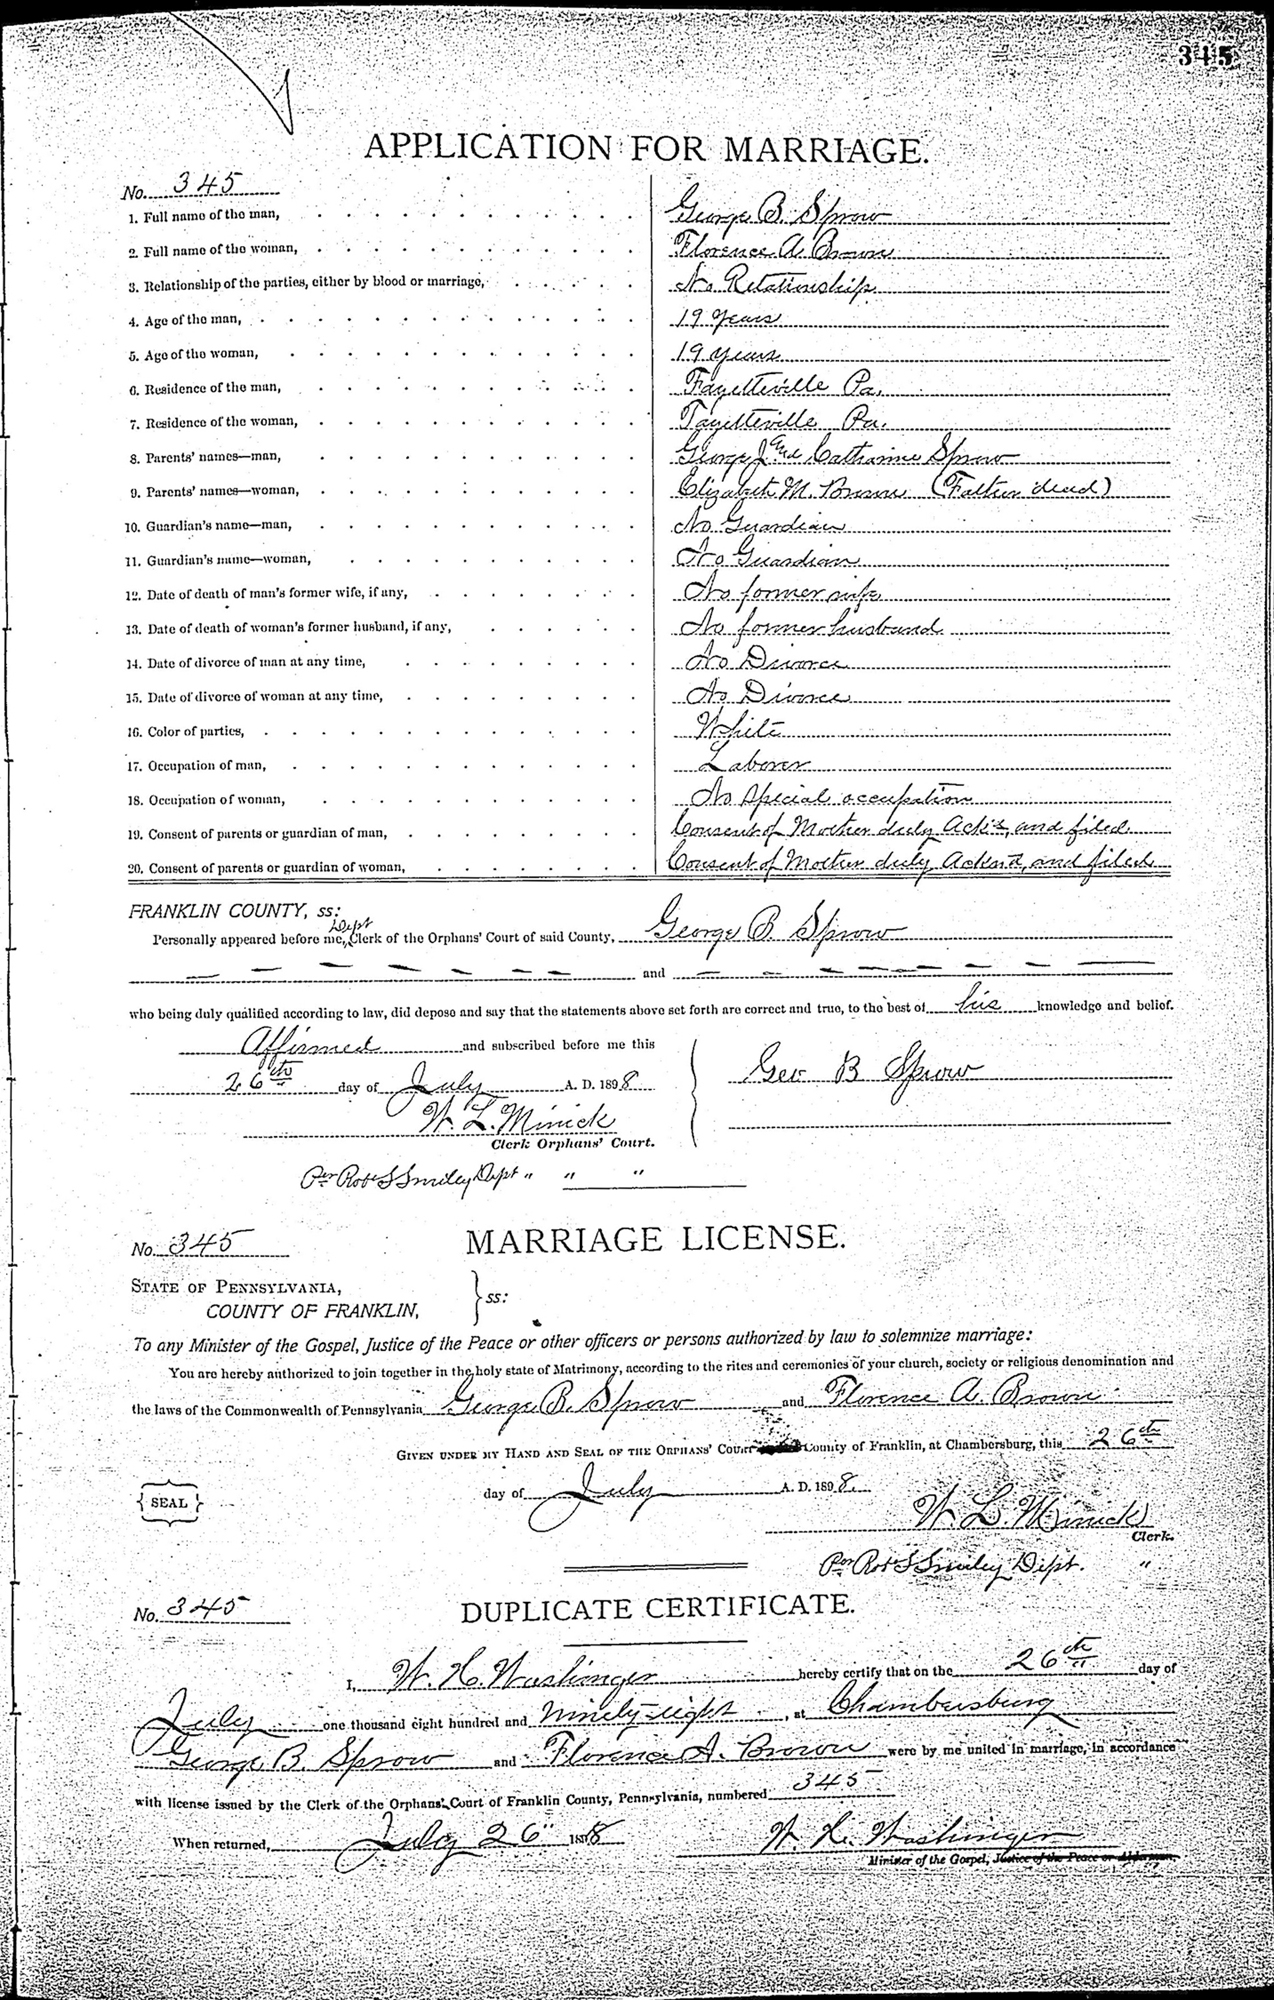 345
APPLICATION FOR MARRIAGE.
No. 345
1. Full name of the man, George B. Sprow
2. Full name of the woman, Florence A. Brown
3. Relationship of the parties, either by blood or marriage, No Relationship
4. Age of the man, 19 years
5. Age of the woman, 19 years
6. Residence of the man, Fayetteville Pa.
7. Residence of the woman, Fayetteville Pa.
8. Parents' names—man, George J and Catharine Sprow
9. Parents' names—woman, Elizabeth M. Brown (Father dead)
10. Guardian's name—man, No Guardian
11. Guardian's name—woman, No Guardian
12. Date of death of man's former wife, if any, No former wife
13. Date of death of woman's former husband, if any, No former husband
14. Date of divorce of man at any time, No Divorce
15. Date of divorce of woman at any time, No Divorce
16. Color of parties, White
17. Occupation of man, Laborer
18. Occupation of woman, No special occupation
19. Consent of parents or guardian of man, Consent of Mother duly Ack'd, and filed
20. Consent of parents or guardian of woman, Consent of Mother duly Acknd, and filed
FRANKLIN COUNTY, ss:
Personally appeared before me, Dept Clerk of the Orphans' Court of said County, George B Sprow
and
who being duly qualified according to law, did depose and say that the statements above set forth are correct and true, to the best of his knowledge and belief.
Affirmed and subscribed before me this
26th day of July A. D. 1898
Geo B Sprow
W. L. Minick
Clerk Orphans' Court.
Per Robt S Smiley Dept " " "
No. 345
MARRIAGE LICENSE.
STATE OF PENNSYLVANIA,
COUNTY OF FRANKLIN, ss:
To any Minister of the Gospel, Justice of the Peace or other officers or persons authorized by law to solemnize marriage:
You are hereby authorized to join together in the holy state of Matrimony, according to the rites and ceremonies of your church, society or religious denomination and
the laws of the Commonwealth of Pennsylvania George B. Sprow and Florence A. Brown
GIVEN UNDER MY HAND AND SEAL OF THE ORPHANS' COURT County of Franklin, at Chambersburg, this 26th
day of July A. D. 1898.
SEAL
W. L. Minick
Clerk.
Per Robt S Smiley Dept. "
No. 345
DUPLICATE CERTIFICATE.
I, W. H. Washinger hereby certify that on the 26th day of
July one thousand eight hundred and Ninety-eight, at Chambersburg
George B. Sprow and Florence A. Brown were by me united in marriage, in accordance
with license issued by the Clerk of the Orphans' Court of Franklin County, Pennsylvania, numbered 345
When returned, July 26" 1898
W. H. Washinger
Minister of the Gospel, Justice of the Peace or Alderman.